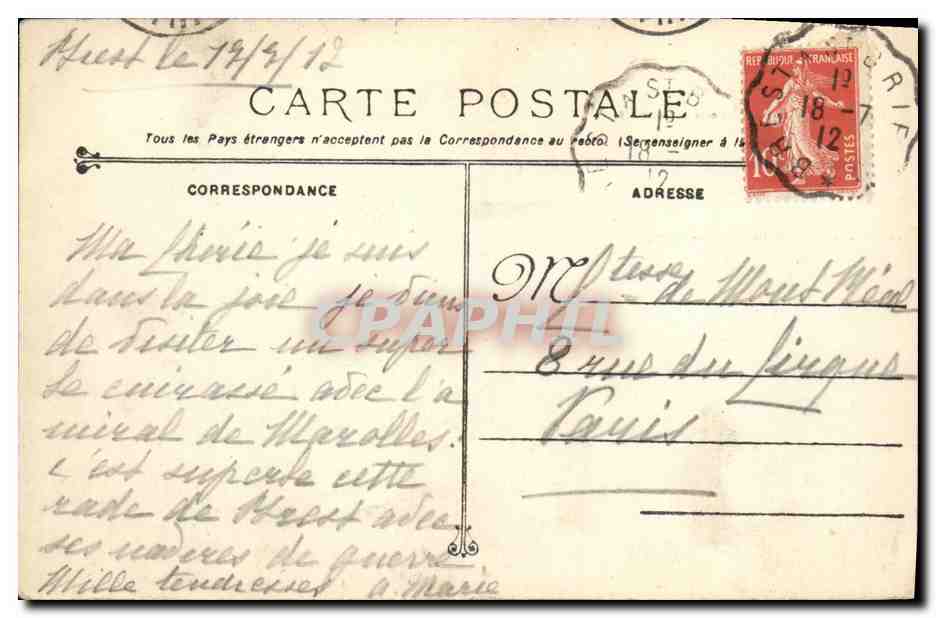 Brest le 17/7/12
CARTE POSTALE
Tous les Pays étrangers n'acceptent pas la Correspondance au recto. (Se renseigner à la
CORRESPONDANCE
ADRESSE
RÉPUBLIQUE FRANÇAISE
10c
POSTES
BREST
18 -7
12
18 -
12
Ma Chérie je suis
dans la joie je viens
de visiter un super
be cuirassé avec l'a
miral de Marolles.
c'est superbe cette
rade de Brest avec
ses navires de guerre
Mille tendresses a Marie
M Ctesse de Mont Réal
8 rue du Cirque
Paris
CPAPHIL